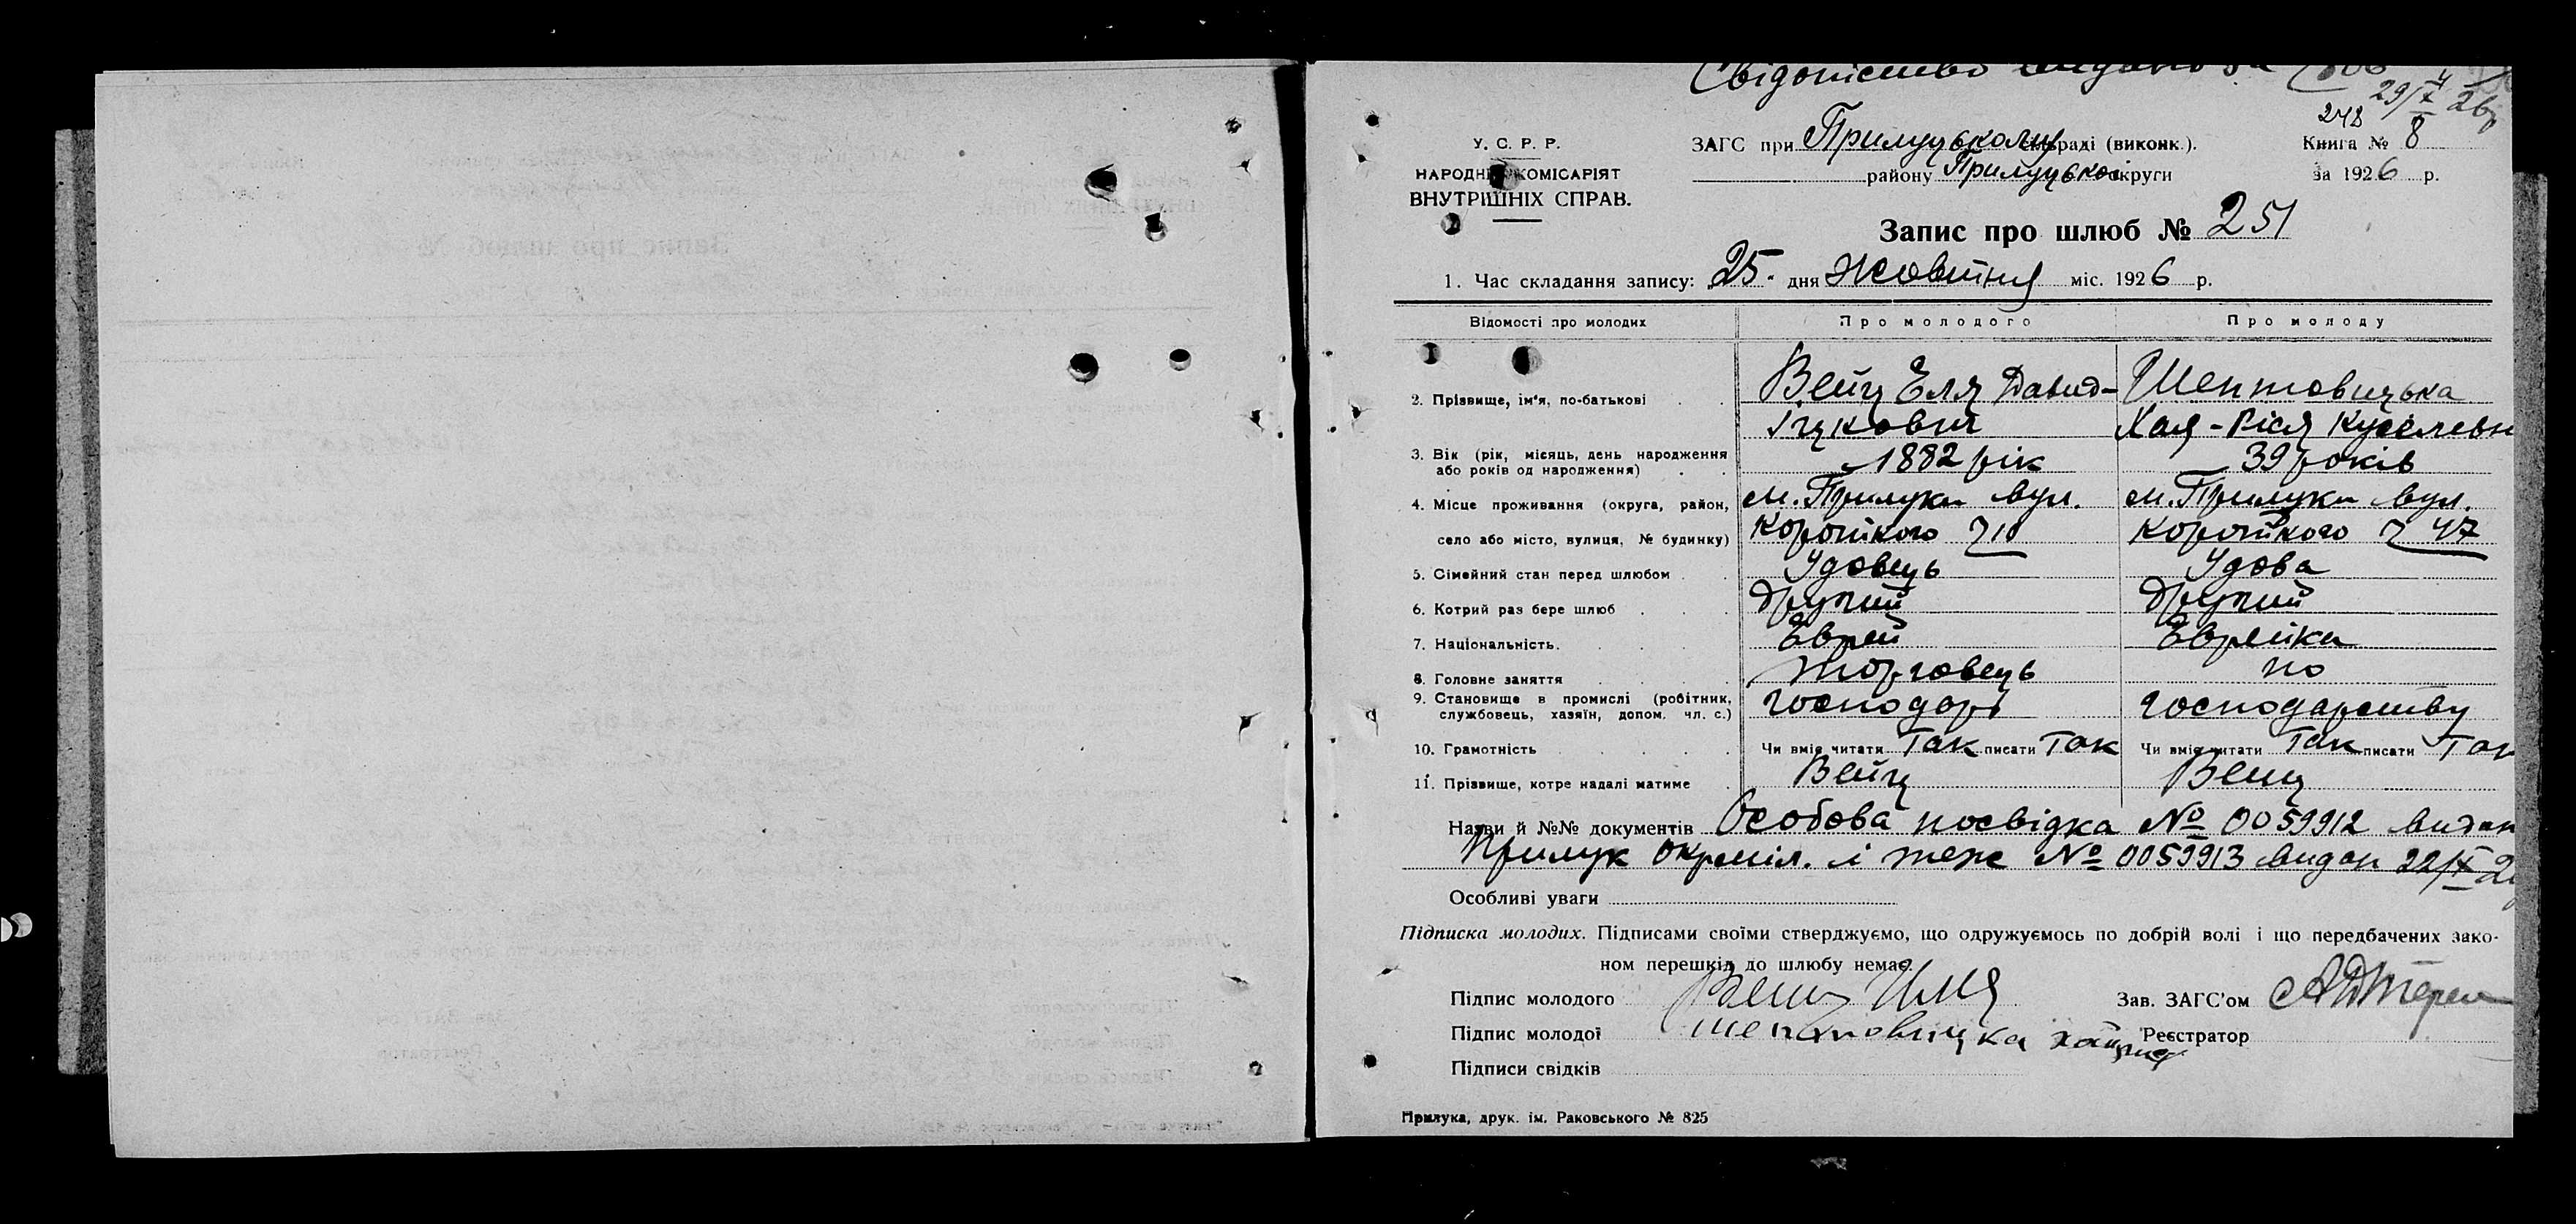 Свідоцтво видано за
29/X 26р
248
У. С. Р. Р.
НАРОДНІЙ КОМІСАРІЯТ
ВНУТРІШНІХ СПРАВ.
ЗАГС при Прилуцькому міськраді (виконк.).
району Прилуцької округи
Книга № 8
за 1926 р.
Запис про шлюб № 251
1. Час складання запису: 25 дня Жовтня міс. 1926 р.
Відомості про молодих Про молодого Про молоду
2. Прізвище, ім'я, по-батькові Вейц Еля Давид- Шептовицька
Іцкович Хая-Рися
3. Вік (рік, місяць, день народження
або років од народження) 1882 рік 39 років
4. Місце проживання (округа, район, м. Прилуки вул. м. Прилуки вул.
село або місто, вулиця, № будинку) Коропткого 10 Коропткого 47
5. Сімейний стан перед шлюбом Удовець Удова
6. Котрий раз бере шлюб другий другий
7. Національність. Еврей Еврейка
8. Головне заняття торговець по
9. Становище в промислі (робітник,
службовець, хазяїн, допом. чл. с.) господар господарству
10. Грамотність Чи вміє читати Так писати Так Чи вміє читати Так писати Так
11. Прізвище, котре надалі матиме Вейц Вейц
Назви й №№ документів Особова посвідка № 0059912 видан
Прилук окрміл. і теж № 0059913 видан 22/X 2
Особливі уваги
Підписка молодих. Підписами своїми стверджуємо, що одружуємось по добрій волі і що передбачених зако-
ном перешкід до шлюбу немає.
Підпис молодого Вейц Иля Зав. ЗАГС'ом
Підпис молодої Шептовицка Реєстратор
Підписи свідків
Прилука, друк. ім. Раковського № 825